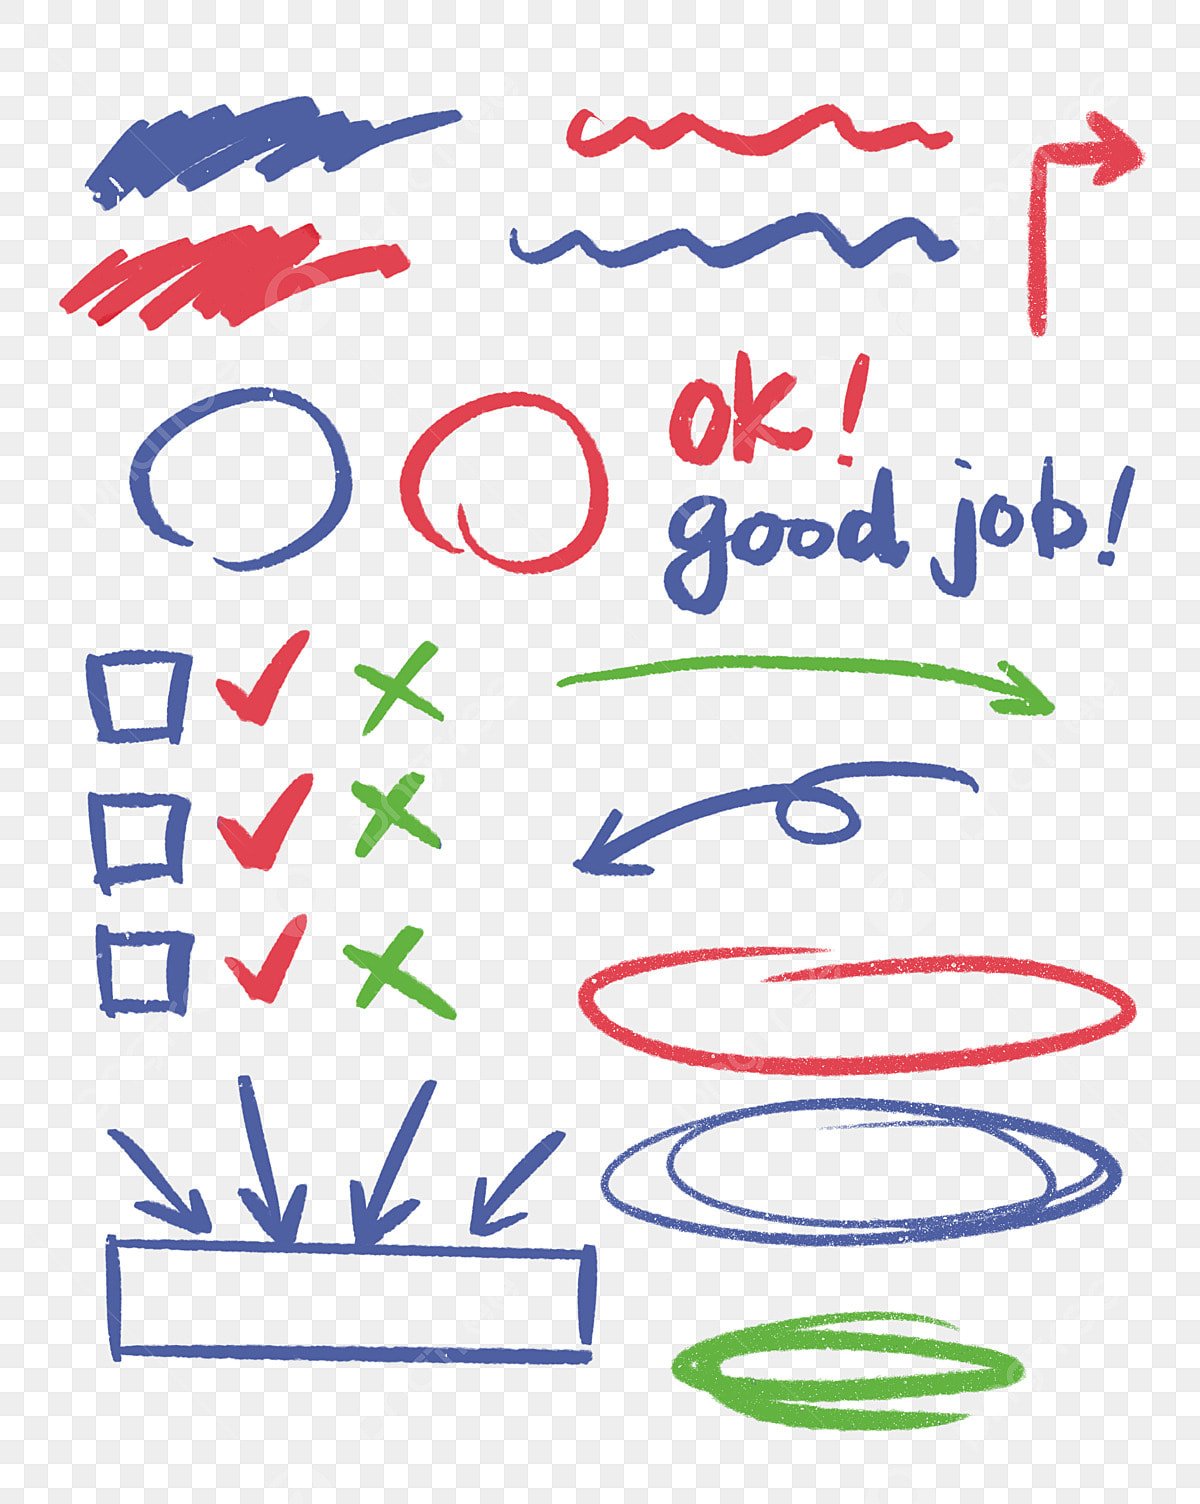 ok!
good job!